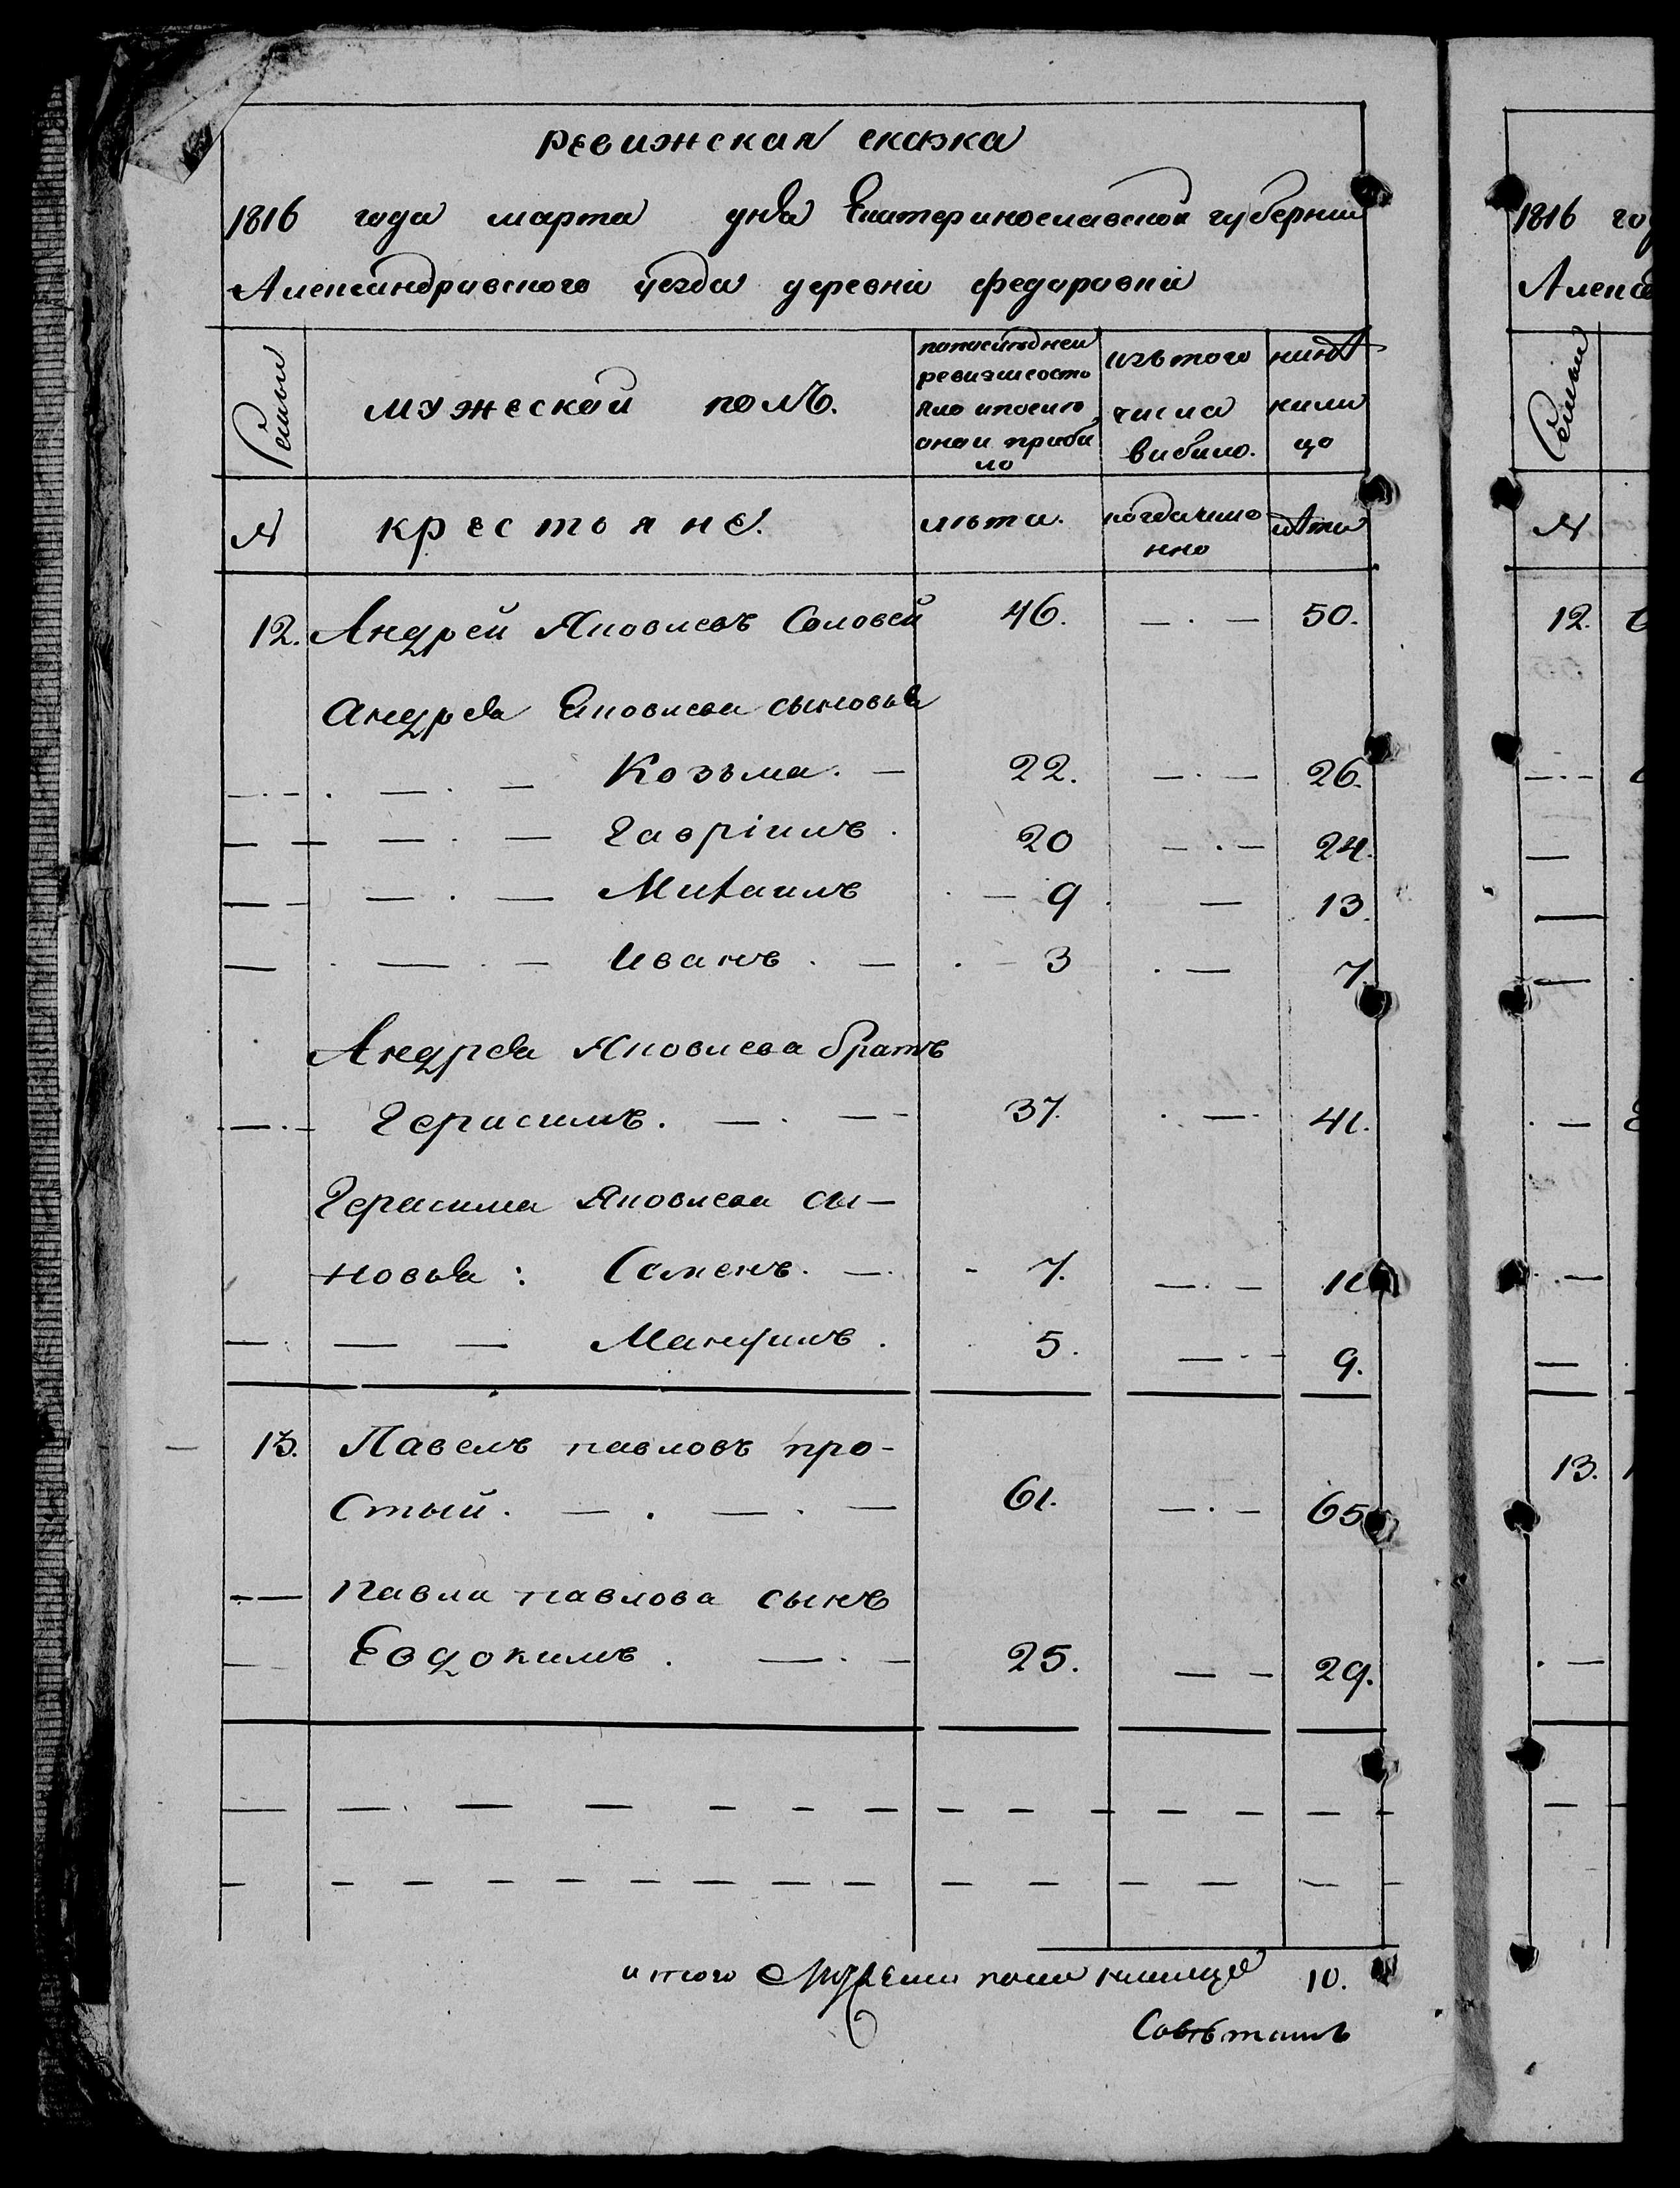 ревижская скаска
1816 года марта дня Екатеринославской губернии
Александравского уезда деревни федаравки
Семьи
мужеской полъ.
попоследней ревизиесостояло ипосле онаи прибило
изътого числа вибило.
нине налицо
№
крестьяне.
лета.
когдаименно
лета
12. Андрей Яковлевъ Соловей 46. — . — 50.
Андрея Яковлева сыновья
Козьма. — 22. — . — 26.
Гавріилъ. 20 — . — 24.
Михаилъ — 9. — 13.
Иванъ. — 3 . — 7.
Андрея Яковлева братъ
Герасимъ. — . — 37. . — 41.
Герасима Яковлева сы-
новья : Саменъ. — 7. — . — 11
Мануилъ. 5. — . — 9.
13. Павелъ павловъ про-
Стый. — . — . — 61. — . — 65
Павла павлова сынъ
Евдокимъ. — . — 25. — — 29.
итого Мужеска пола налице 10.
1816 го
Алекса
Семьи
№
12.
13.